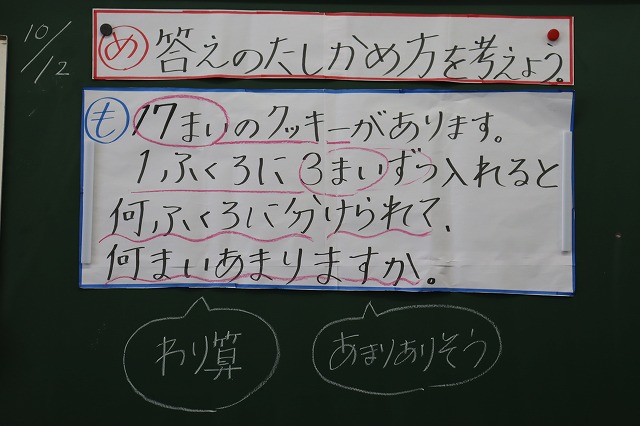 10/12
め 答えのたしかめ方を考えよう。
も 17まいのクッキーがあります。
1ふくろに3まいずつ入れると
何ふくろに分けられて、
何まいあまりますか。
わり算
あまりありそう